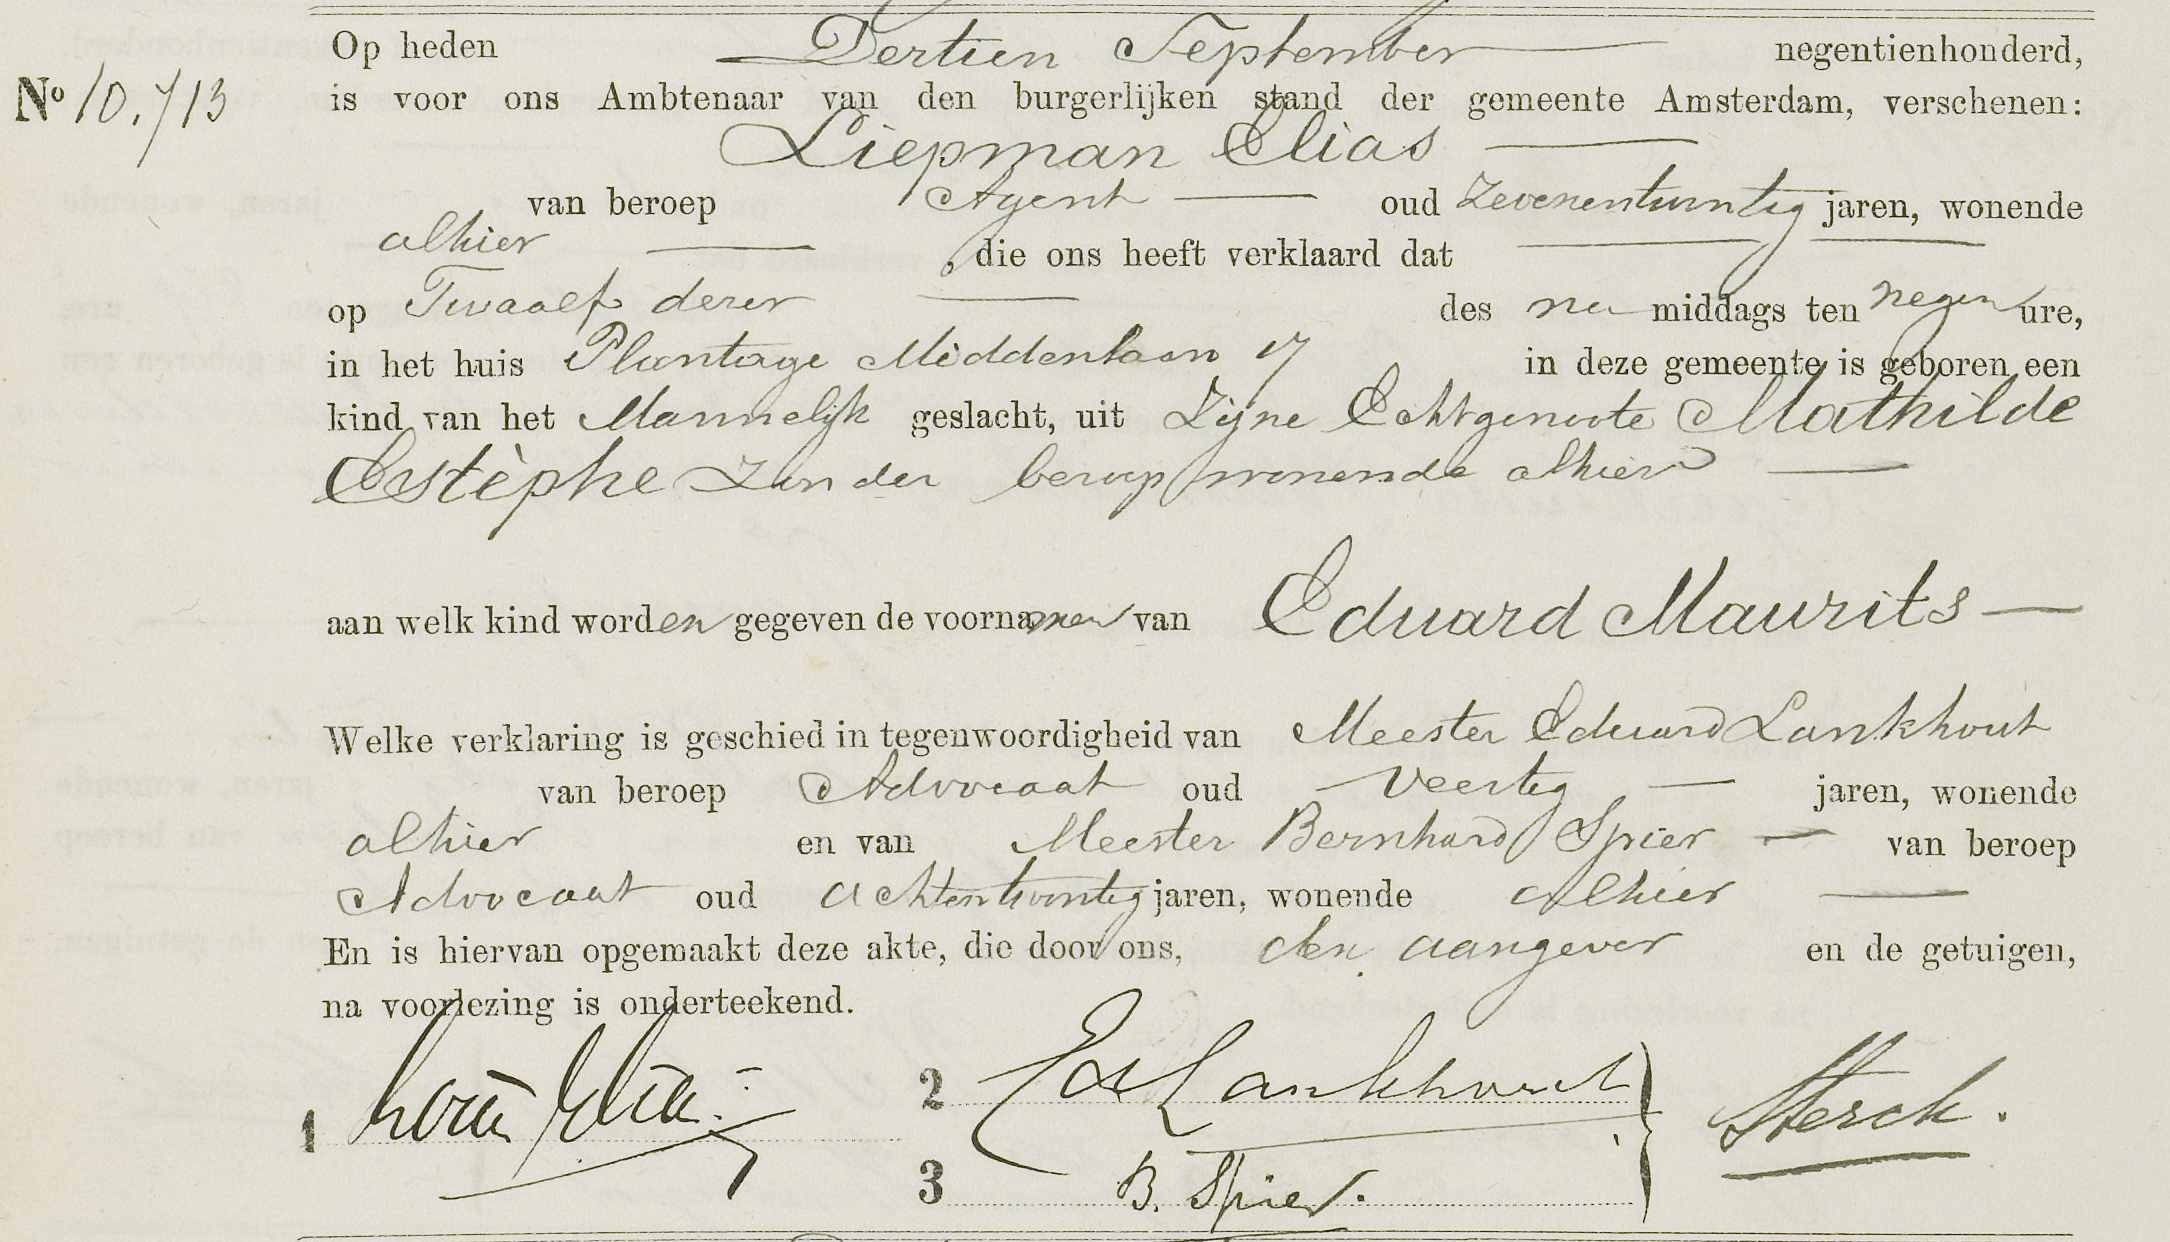 Op heden Dertien September negentienhonderd,
No 10.713
is voor ons Ambtenaar van den burgerlijken stand der gemeente Amsterdam, verschenen:
Liepman Elias
van beroep Agent oud Zevenentwintig jaren, wonende
alhier, die ons heeft verklaard dat
op Twaalf dezer des na middags ten negen ure,
in het huis Plantage Middenlaan 17 in deze gemeente is geboren een
kind van het Mannelijk geslacht, uit Zijne Echtgenoote Mathilde
Estèphe Zonder beroep wonende alhier
aan welk kind worden gegeven de voornamen van Eduard Maurits
Welke verklaring is geschied in tegenwoordigheid van Meester Eduard Lankhout
van beroep Advocaat oud Veertig jaren, wonende
alhier en van Meester Bernhard Spier van beroep
Advocaat oud Achtentwintig jaren, wonende alhier
En is hiervan opgemaakt deze akte, die door ons, den aangever en de getuigen,
na voorlezing is onderteekend.
1
2 Ed Lankhout
Sterck.
3 B. Spier.